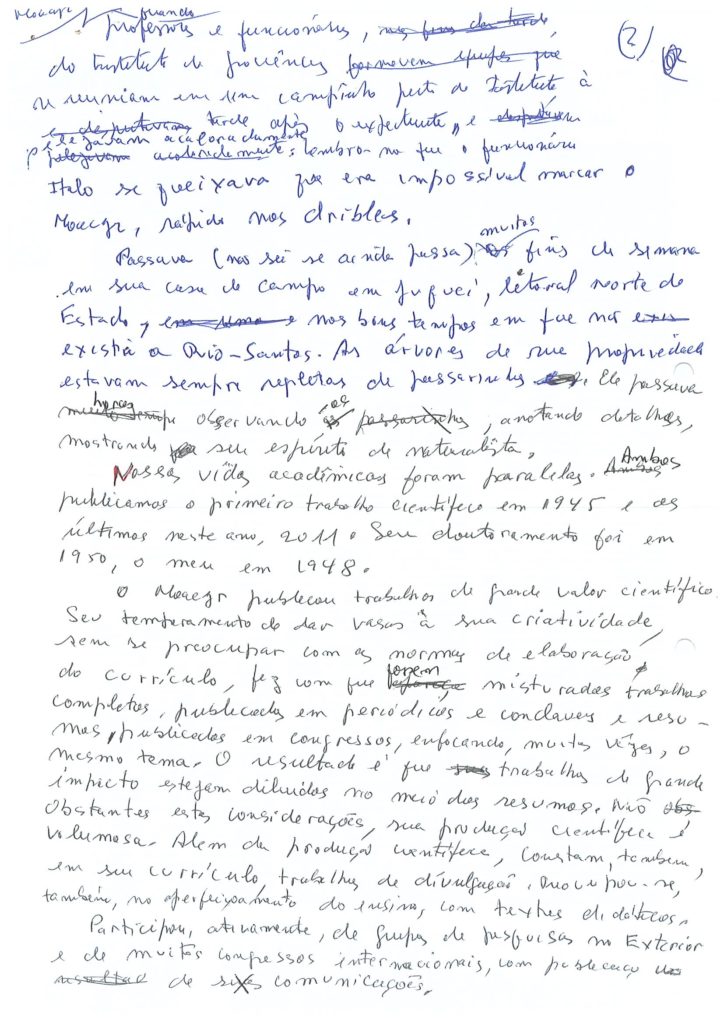 Moacyr quando
professores e funcionários, nos fins da tarde
(2)
do Instituto de Biociências formavam equipes que
se reuniam em um campinho perto do Instituto à
e disputavam tarde após o expediente, e
pelejavam acaloradamente
acaloradamente; lembro-me que o funcionário
Italo se queixava que era impossível marcar o
Moacyr, rápido nos dribles.
Passava (não sei se ainda passa) muitos fins de semana
em sua casa de campo em Juqueí, litoral norte do
Estado, em uma e nos bons tempos em que não exis
existia a Rio-Santos. As árvores de sua propriedade
estavam sempre repletas de passarinhos. Ele passava
horas
muito tempo observando -os os passarinhos, anotando detalhes,
mostrando seu espírito de naturalista.
Nossas vidas acadêmicas foram paralelas. Ambos Ambos
publicamos o primeiro trabalho científico em 1945 e os
últimos neste ano, 2011. Seu doutoramento foi em
1950, o meu em 1948.
O Moacyr publicou trabalhos de grande valor científico.
Seu temperamento de dar vasas à sua criatividade,
sem se preocupar com as normas de elaboração
do currículo, fez com que fossem misturados trabalhos
completos, publicados em periódicos e conclaves e resu-
mos, publicados em congressos, enfocando, muitas vêzes, o
mesmo tema. O resultado é que seus trabalhos de grande
impacto estejam diluídos no meio dos resumos. Não obs-
obstantes estas considerações, sua produção científica é
volumosa. Alem da produção científica, constam, também,
em seu currículo trabalhos de divulgação. Preocupou-se,
também, no aperfeiçoamento do ensino, com textos didáticos.
Participou, ativamente, de grupos de pesquisas no Exterior
e de muitos congressos internacionais, com publicação
resultad de suas comunicações.